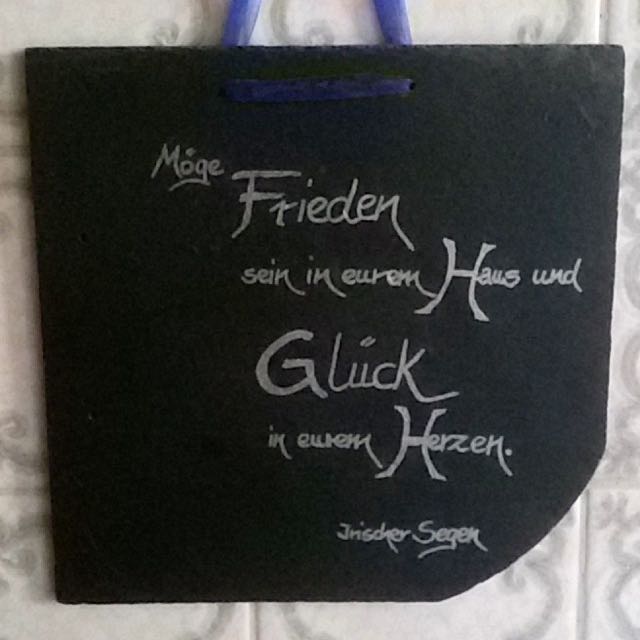 Möge
Frieden
sein in eurem Haus und
Glück
in eurem Herzen.
Irischer Segen